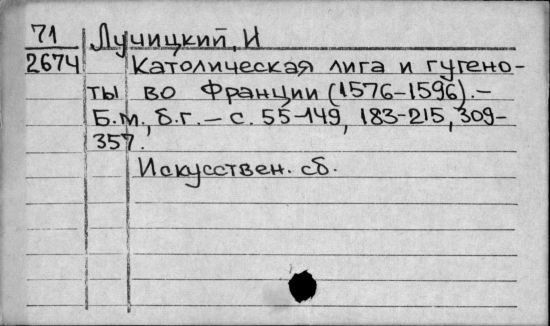 71 Лучицкий, И
2674 Католическая лига и гугено-
ты во Франции (1576-1596).-
Б.м., б.г. - с. 55-149, 183-215, 309-
357.
Искусствен. сб.